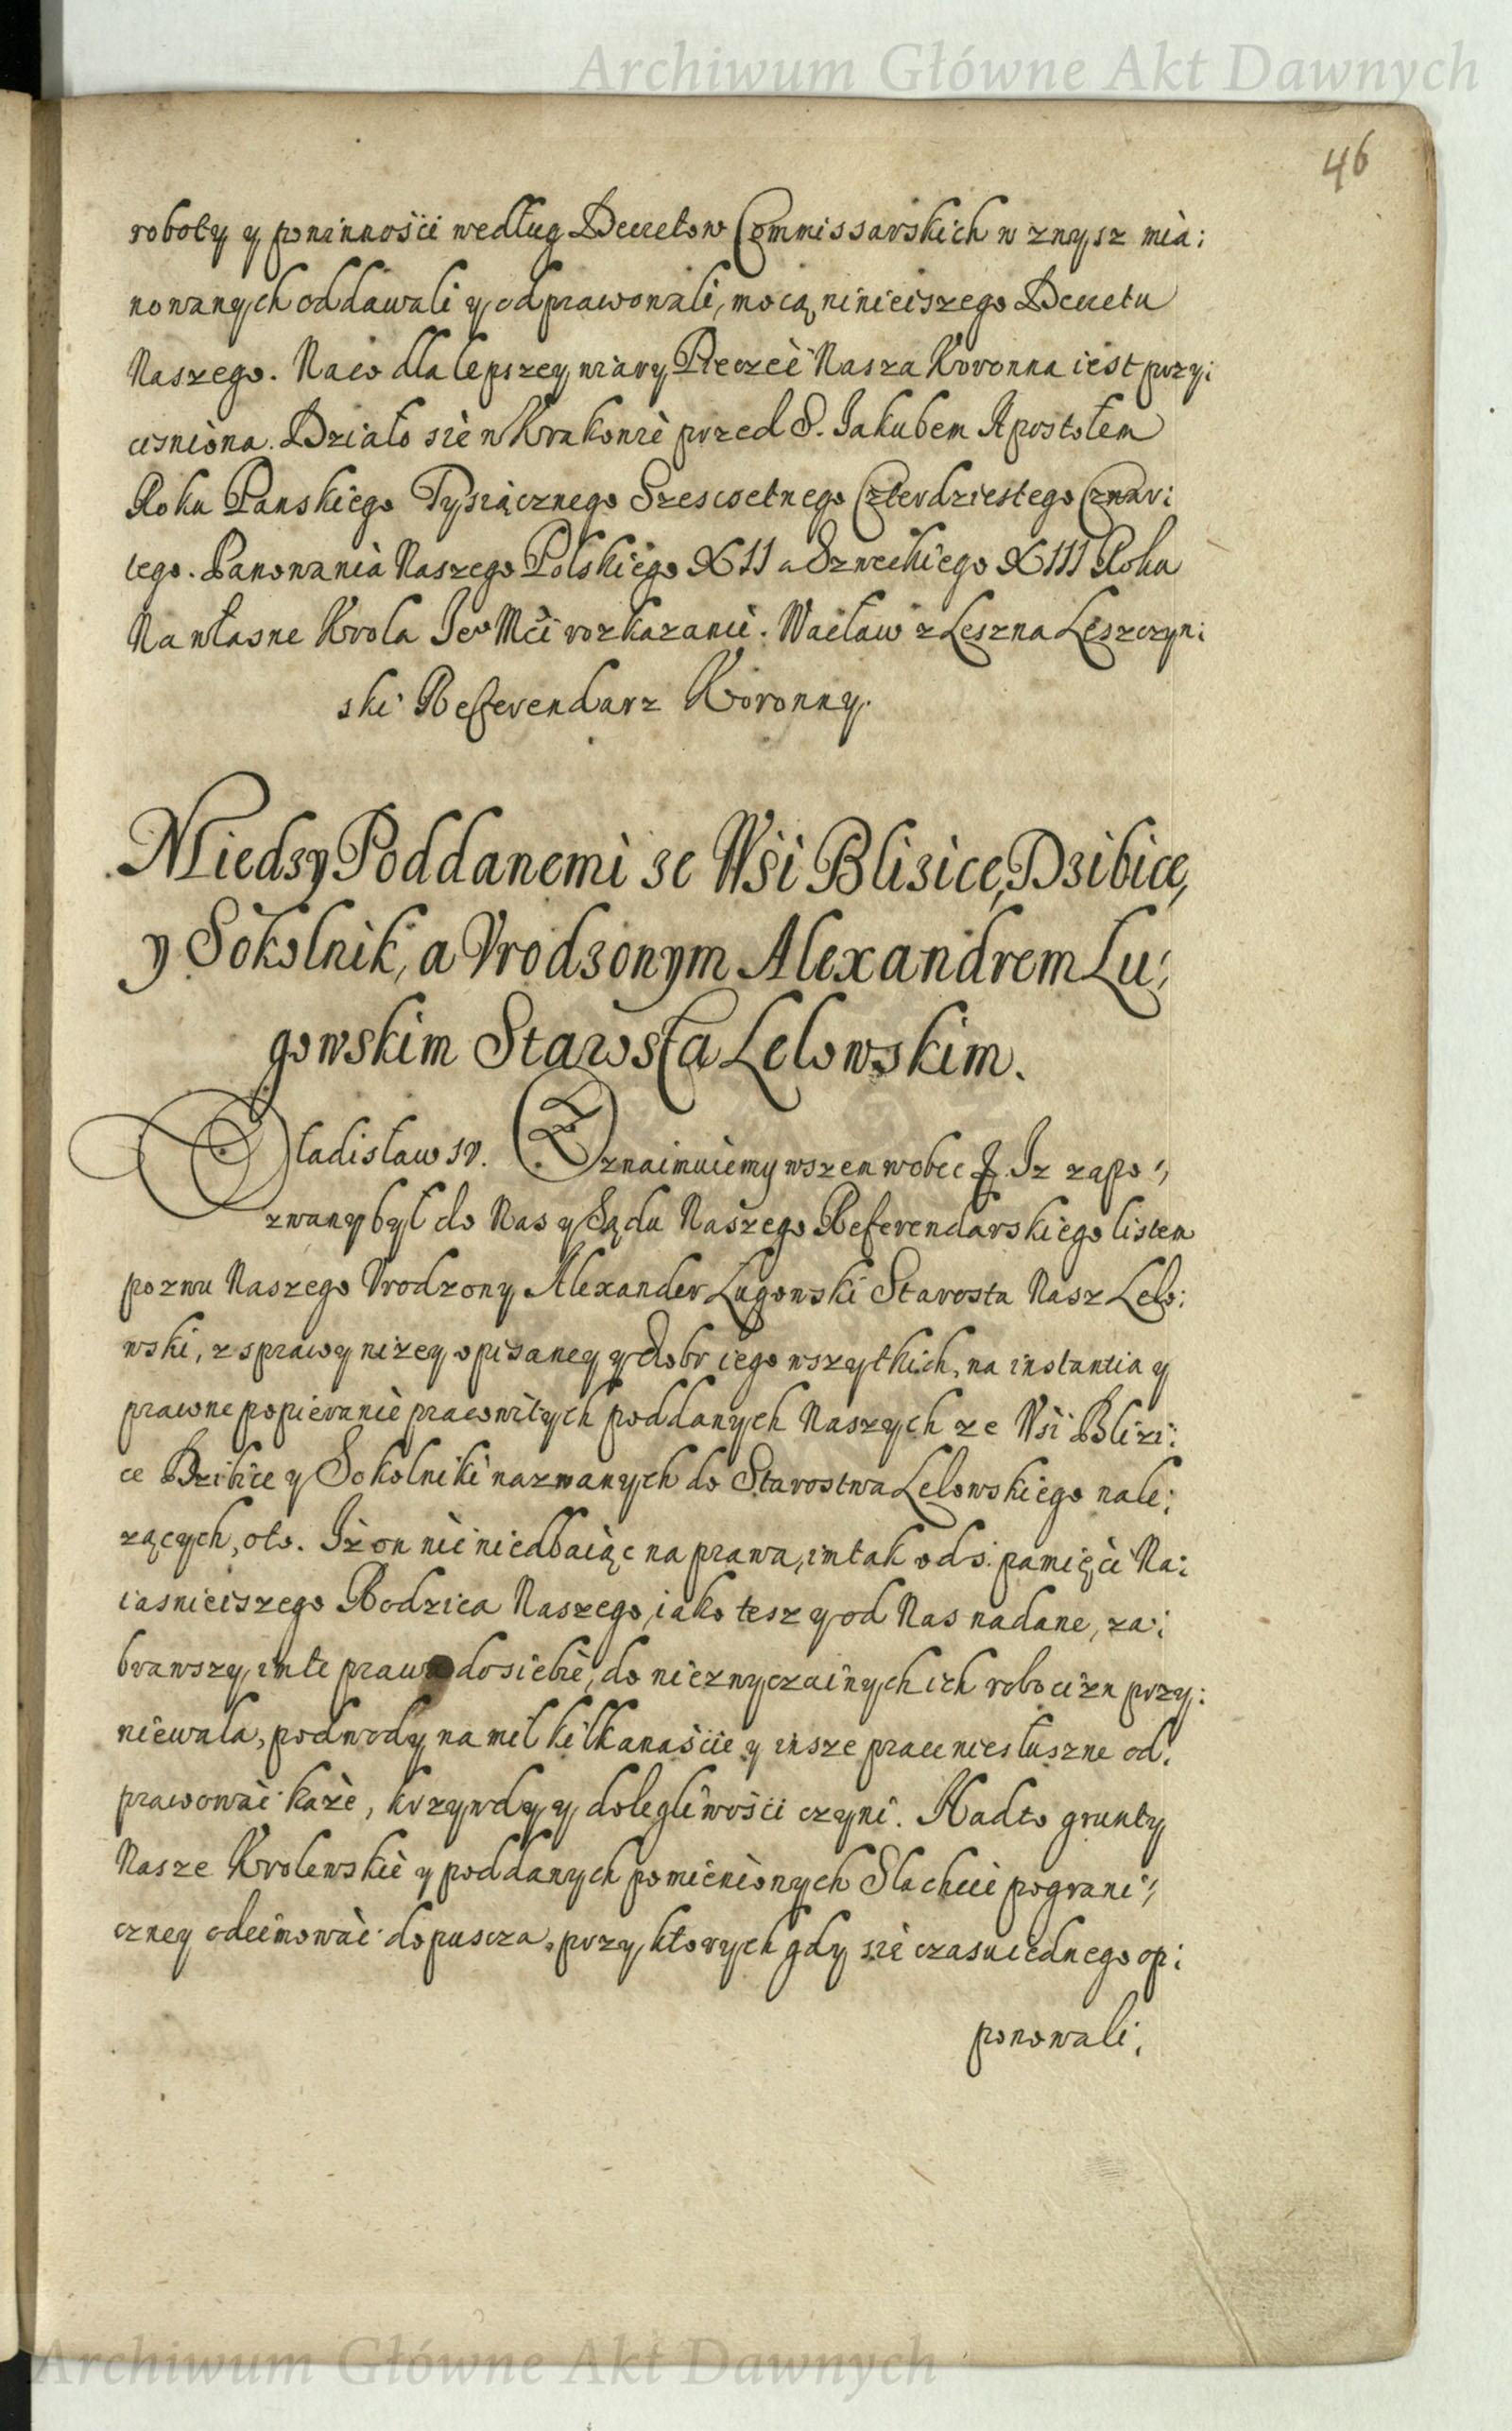 Archiwum Główne Akt Dawnych
46
roboty y powinnośći według Decretow Commissarskich w zwysz mia:
nowanych oddawali y odprawowali, mocą ninieiszego Decretu
Naszego. Na co dla lepszey wiary Pieczęć Nasza Koronna iest przy:
ciśniona. Działo się w Krakowie przed S. Jakubem Apostołem
Roku Panskiego Tysiącznego Szescsetnego Czterdziestego Czwar:
tego. Panowania Naszego Polskiego XII a Szweckiego XIII Roku
Na własne Krola Jeo Mći rozkazanie. Wacław z Leszna Leszczyn:
ski Referendarz Koronny.
Miedzy Poddanemi ze Wśi Blizice, Dzibice,
y Sokolnik, a Vrodzonym Alexandrem Lu:
gowskim Starostą Lelowskim.
Vladisław IV. Oznaimuiemy wszem wobec Iz zapo:
zwany był do Nas y Sądu Naszego Referendarskiego listem
pozwu Naszego Vrodzony Alexander Lugowski Starosta Nasz Lelo:
wski, z sprawy nizey opisaney y dobr iego wszytkich, na instantia y
prawne popieranie pracowitych poddanych Naszych ze Wśi Blizi:
ce Dzibice y Sokolniki nazwanych do Starostwa Lelowskiego nale:
zących, oto. Iż on nic niedbaiąc na prawa, im tak od s. pamięći Na:
iasnieiszego Rodzica Naszego, iako tesz y od Nas nadane, za:
brawszy, im te prawa do siebie, do niezwyczainych ich robocizn przy:
niewala, podwody na mil kilkanaśćie y insze prace niesłuszne od:
prawować każe, krzywdy y dolegliwośći czyni. Nadto grunty
Nasze Krolewskie y poddanych pomienionych Slachcie pograni:
czney odeimować dopuscza, przy ktorych gdy się czasu iednego op:
ponowali,
Archiwum Główne Akt Dawnych